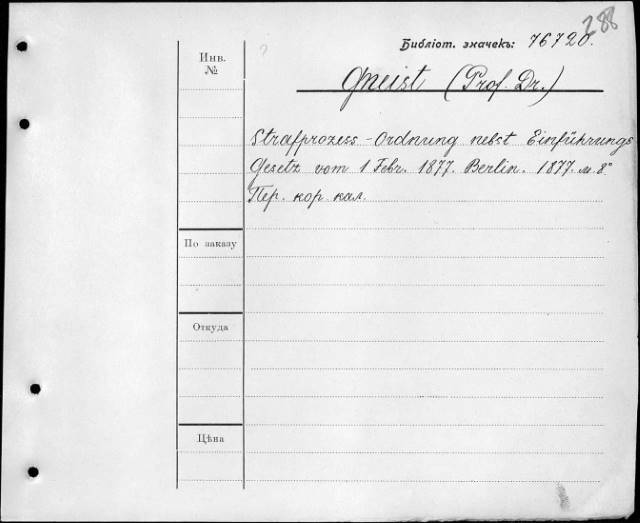 288
Библіот. значекъ: 76720.
Инв.
№
Gneist (Prof. Dr.)
Strafprozess-Ordnung nebst Einführungs
Gesetz vom 1 Febr. 1877. Berlin. 1877. м. 8°
Пер. кор. кал.
По заказу
Откуда
Цѣна